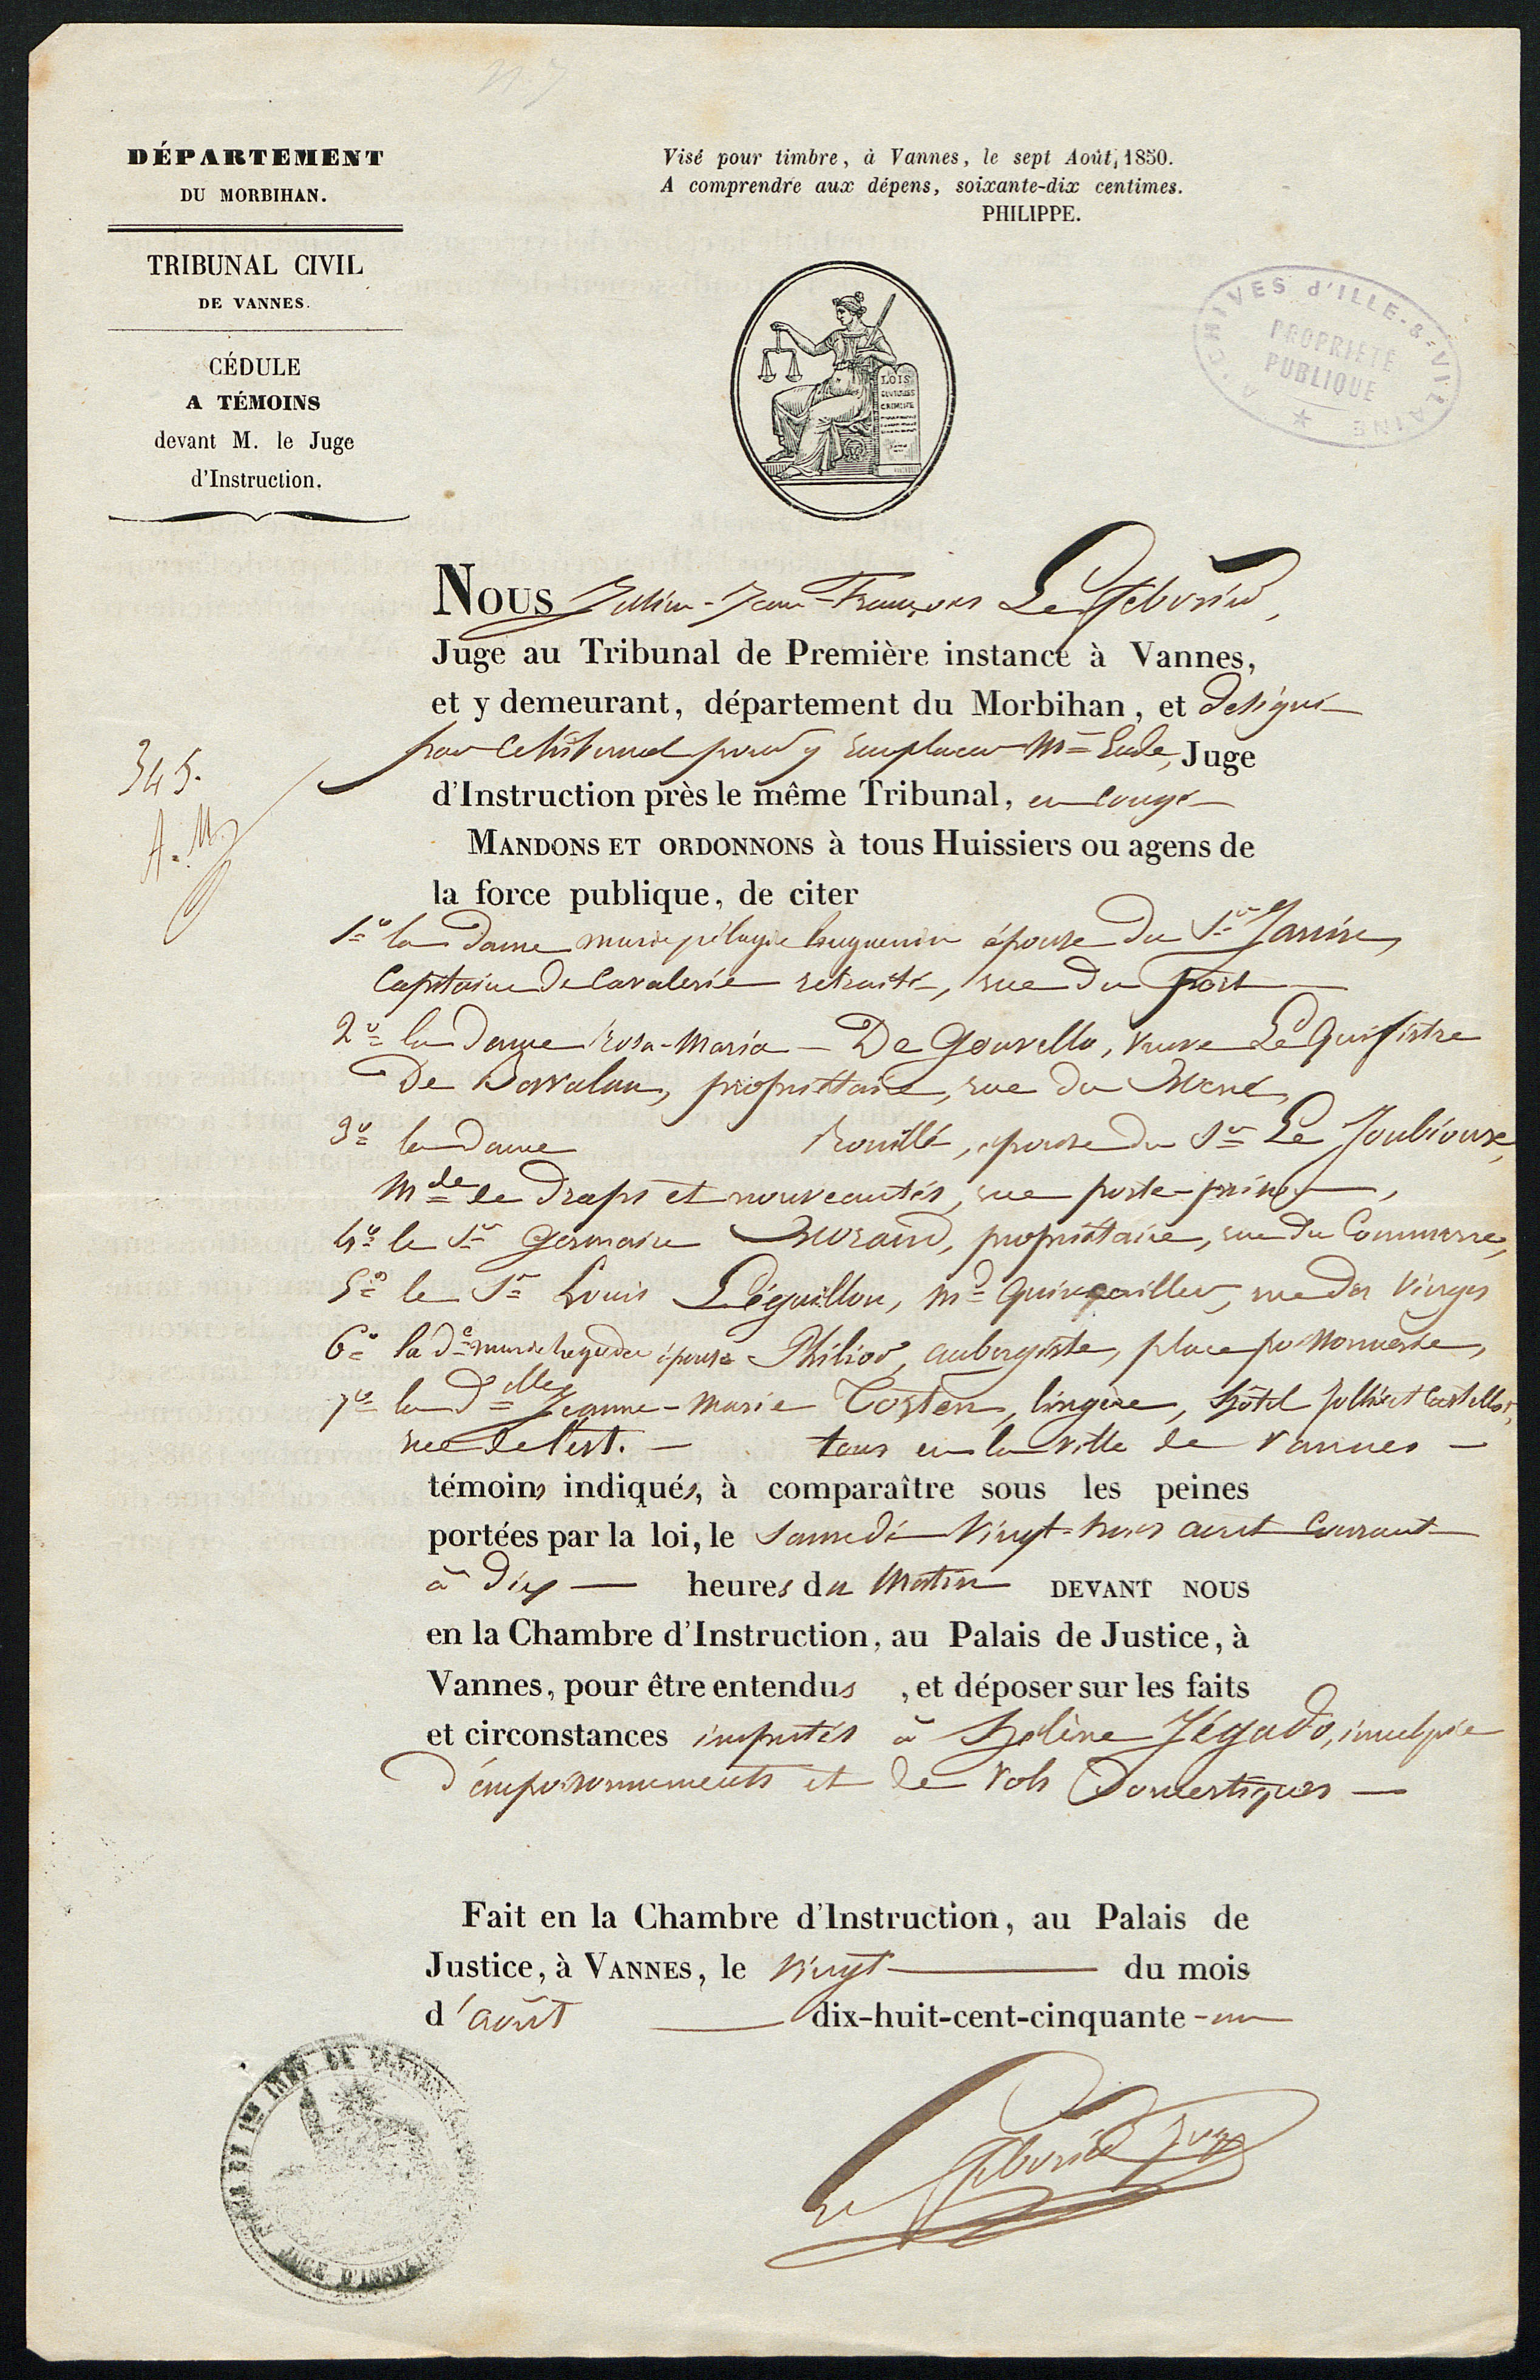 DÉPARTEMENT
DU MORBIHAN.
TRIBUNAL CIVIL
DE VANNES.
CÉDULE
A TÉMOINS
devant M. le Juge
d'Instruction.
Visé pour timbre, à Vannes, le sept Août, 1850.
A comprendre aux dépens, soixante-dix centimes.
PHILIPPE.
LOIS
ARCHIVES d'ILLE-&-VILAINE
PROPRIETE
PUBLIQUE
345.
A. M
Nous Jean-François Le
Juge au Tribunal de Première instance à Vannes,
et y demeurant, département du Morbihan, et désigné
par ce tribunal pour y remplacer Mr Juge
d'Instruction près le même Tribunal, en congé
MANDONS ET ORDONNONS à tous Huissiers ou agens de
la force publique, de citer
1º la dame marie pélagie huguenin épouse du Sr
Capitaine de Cavalerie retraité, rue du Port
2º la dame rosa-Maria De Gouvello, veuve Le Quifistre
De Bavalan, propriétaire, rue du Mené,
3º la dame Rouillé, épouse du Sr Le Joubioux,
Mde de draps et nouveautés, rue porte-prison,
4º le Sr Germain Morand, propriétaire, rue du Commerce,
5º le Sr Louis Léguillon, Md Quincailler, rue des Vierges
6º la de marie épouse aubergiste, place
7º la Dlle Jeanne-Marie Costen, lingère, hôtel
rue de l'est. – tous en la ville de Vannes –
témoins indiqués, à comparaître sous les peines
portées par la loi, le samedi Vingt-trois aout Courant
à dix — heures du Matin DEVANT NOUS
en la Chambre d'Instruction, au Palais de Justice, à
Vannes, pour être entendus , et déposer sur les faits
et circonstances imputés à hélène Jégado, inculpée
d'empoisonnements et de Vols Domestiques —
Fait en la Chambre d'Instruction, au Palais de
Justice, à VANNES, le Vingt — du mois
d'août — dix-huit-cent-cinquante-un
JUGE D'INST